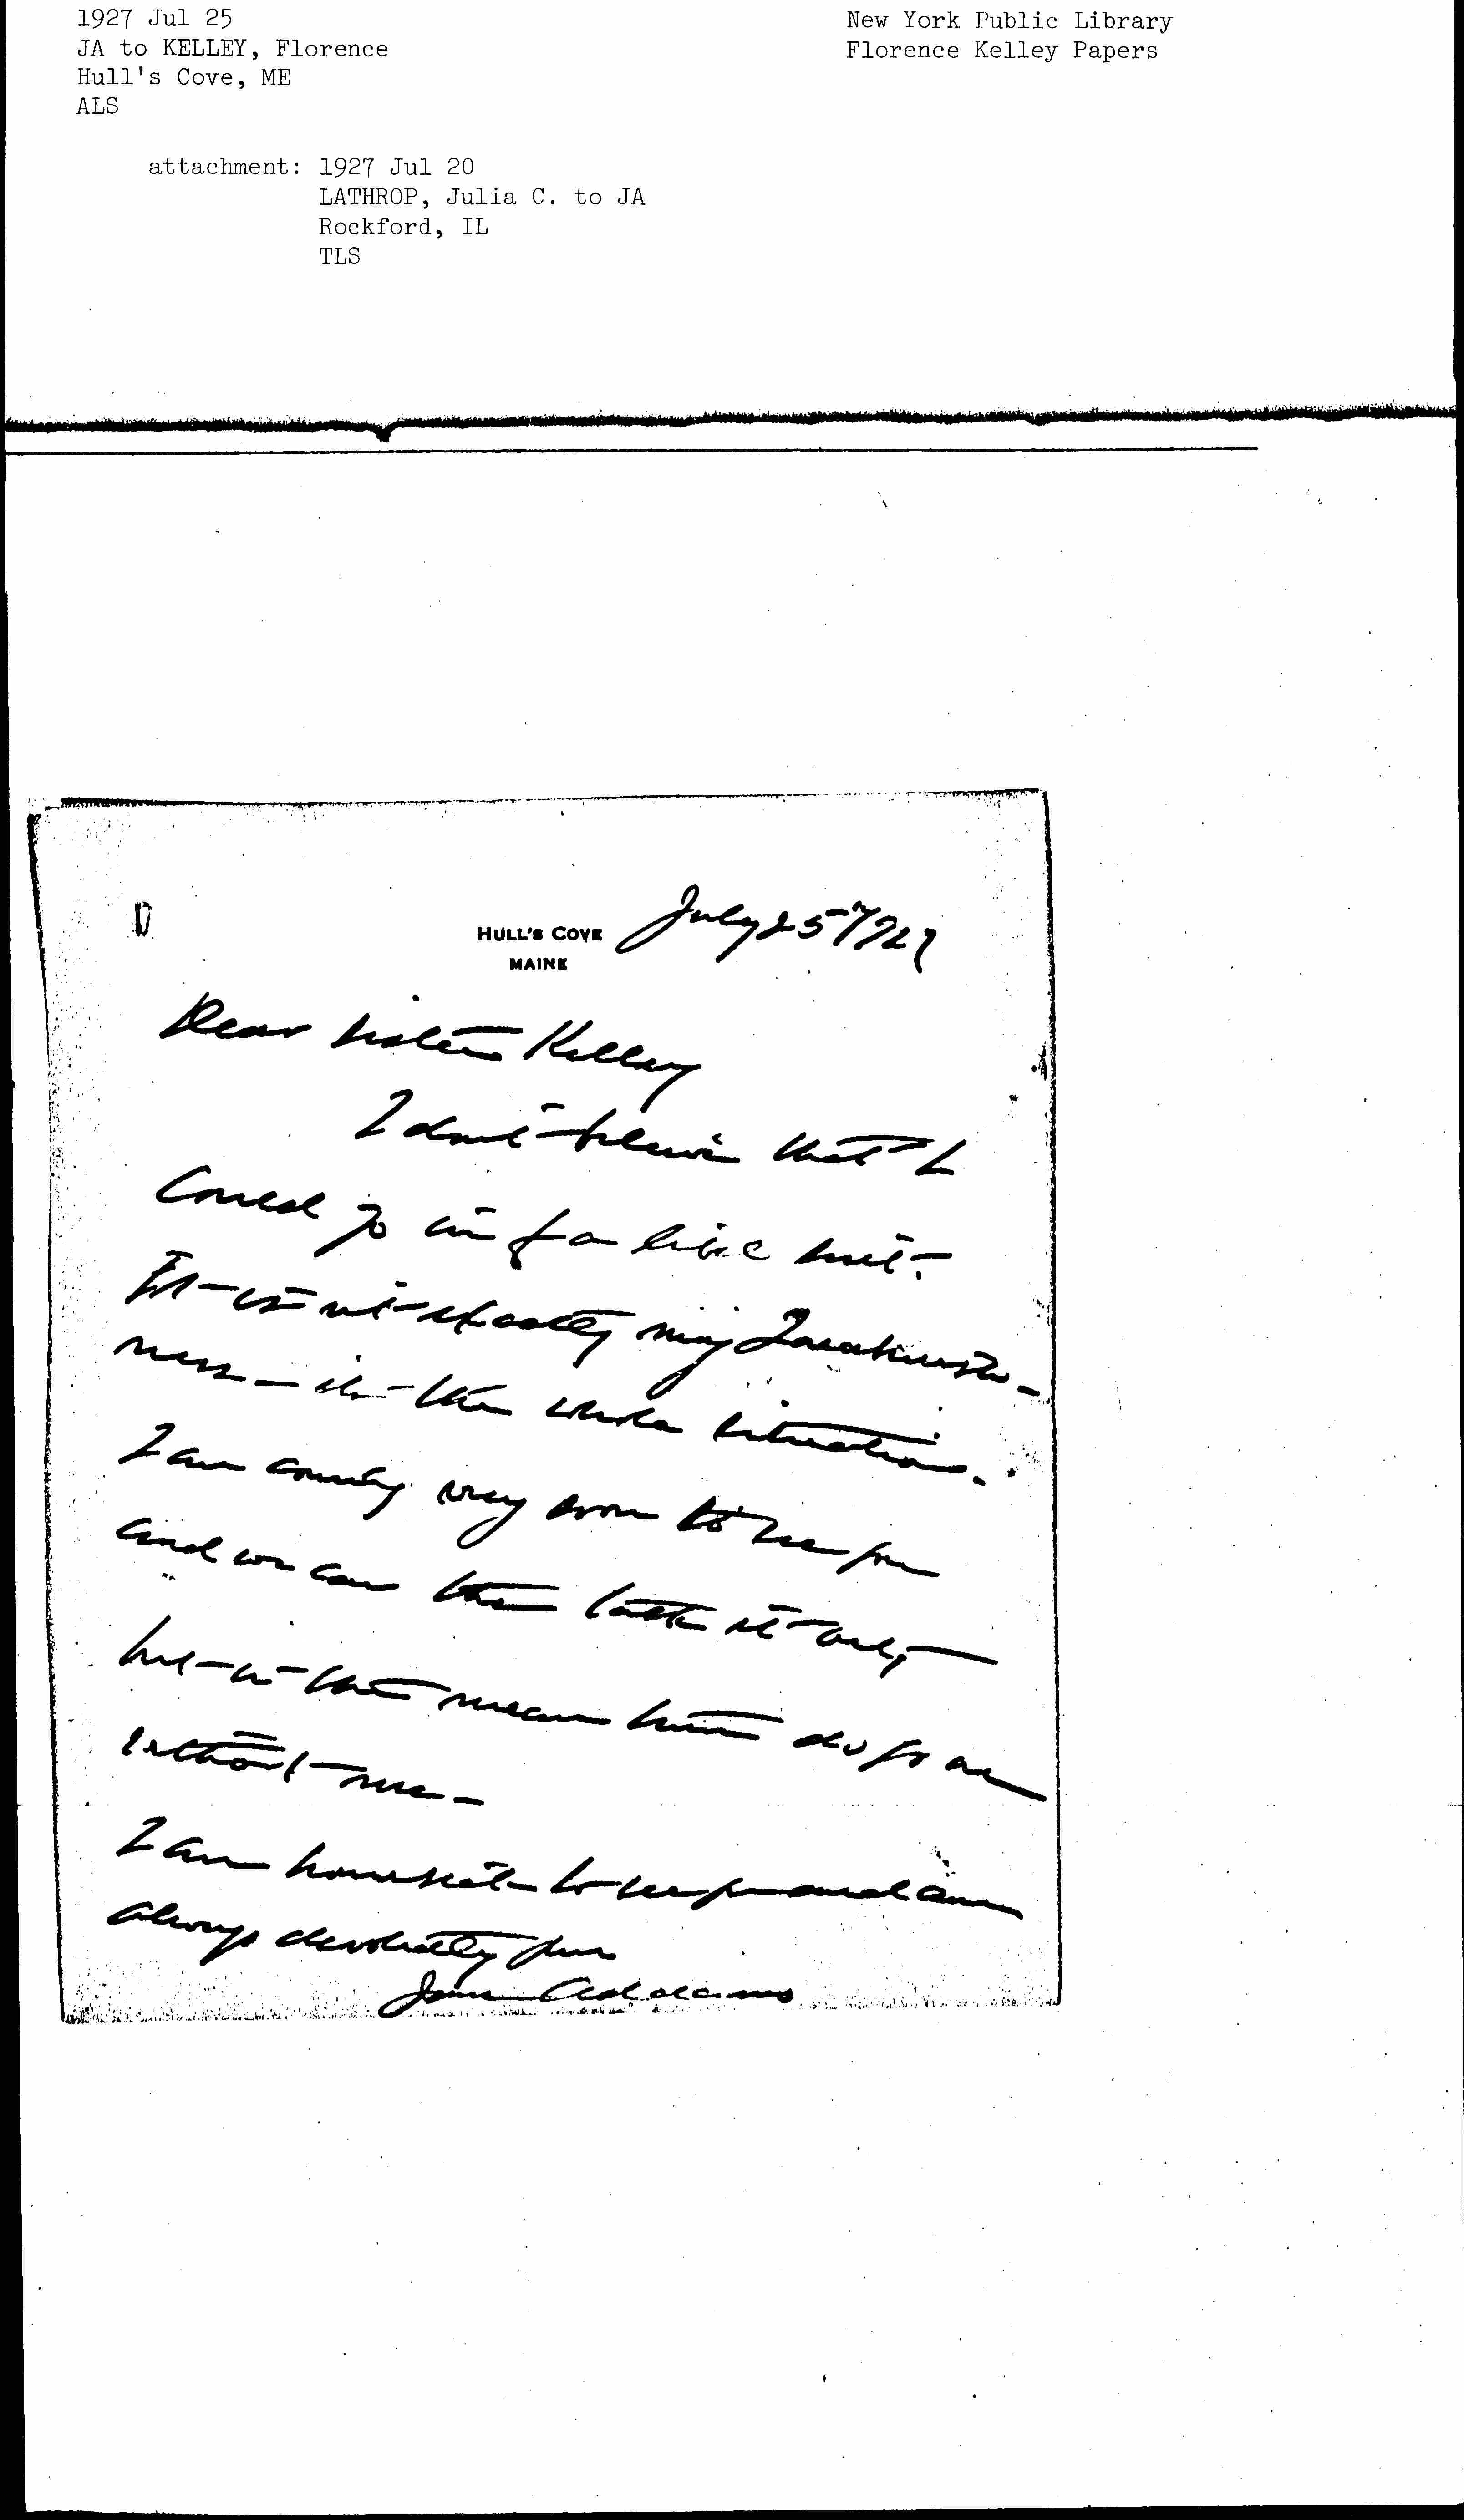 1927 Jul 25
JA to KELLEY, Florence
Hull's Cove, ME
ALS
New York Public Library
Florence Kelley Papers
attachment: 1927 Jul 20
LATHROP, Julia C. to JA
Rockford, IL
TLS
HULL'S COVE
MAINE
July 25"/927
Dear Sister Kelley
I don't believe that I
could go in for a libel suit.
It is not exactly my
ness – it's the whole situation.
I am coming very soon to see you
and we can then talk it out,
but in the mean time do for me
without me –
I am homesick to see you and am
always devotedly yours
Jane Addams